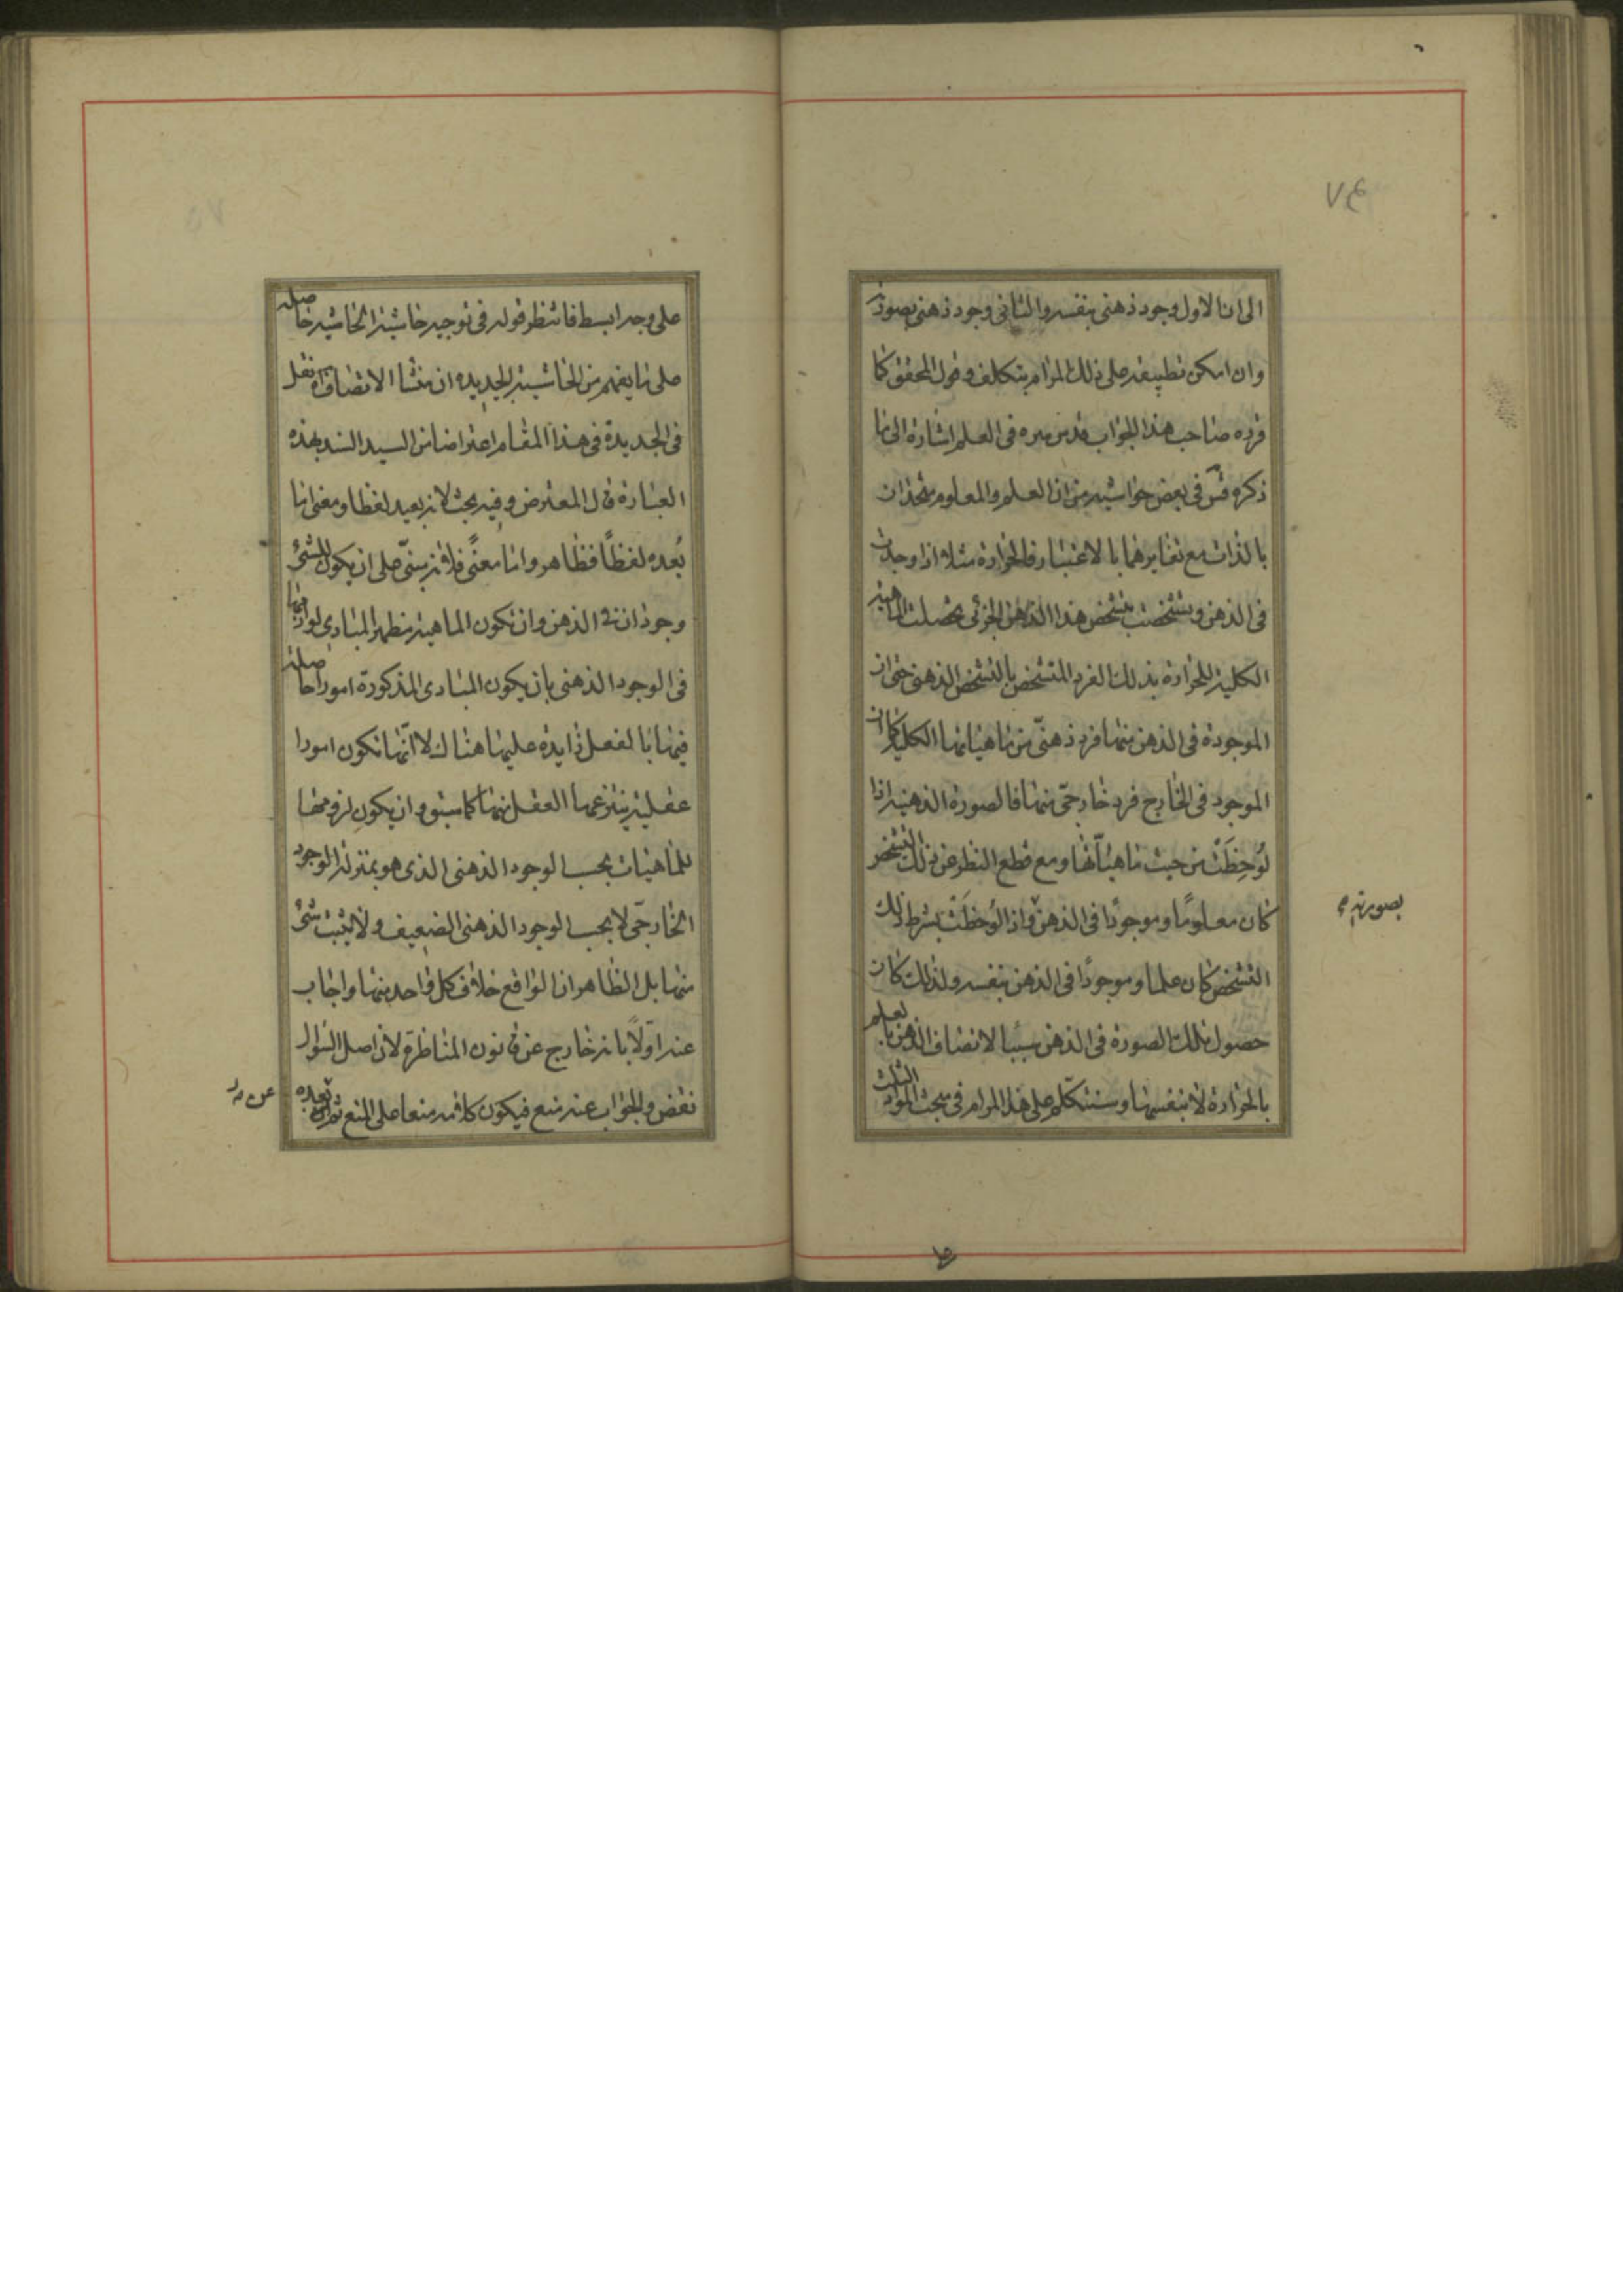 ٧٤
الى ان الاول وجود ذهنى بنفسه والثانى وجود ذهنى بصورته
وان امكن تطبيقه على ذلك المرام بتكلف وقول المحقق كما
قرره صاحب هذا الجواب قدس سره فى العلم اشارة الى ما
ذكره قس فى بعض حواشيه من ان العلم والمعلوم متحدان
بالذات مع تغايرهما بالاعتبار فالحرارة مثلا اذا وجدت
فى الذهن وتشخصت بتشخص هذا الذهن الجزئى تحصلت الماهية
الكلية للحرارة بذلك الفرد المتشخص بالتشخص الذهنى حتى ان
الموجودة فى الذهن منها فرد ذهنىّ من ماهياتها الكلية كما ان
الموجود فى الخارج فرد خارجىّ منها فالصورة الذهنية اذا
لُوحِظَتْ من حيث ماهياتها ومع قطع النظر عن ذلك التشخص
كان معلومًا وموجودًا فى الذهن واذا لُوحظَتْ بشرط ذلك
بصورته
التشخص كان علما وموجودًا فى الذهن بنفسه ولذلك كان
حصول تلك الصورة فى الذهن سببا لاتصاف الذهن بالعلم
بالحرارة لا بنفسها وسنتكلم على هذا المرام فى مبحث المواد الثلث
على وجه ابسط فانتظر قوله فى توجيه حاشية الحاشية حاصله
على ما يفهم من الحاشية الجديده ان منشا الاتصاف آه نقل
فى الجديدة فى هذا المقام اعتراضا من السيد السند بهذه
العبارة قال المعترض وفيه بحث لانه بعيد لفظا ومعنى اما
بُعده لفظًا فظاهر واما معنًى فلانه مبنىّ على ان يكون للشئ
وجودان فى الذهن وان تكون الماهية مظهر المبادى لوازمها
فى الوجود الذهنى بان يكون المبادى المذكورة امورا حاصلة
فيها بالفعل زايدة عليها هناك لا انّها تكون امورا
عقلية ينتزعها العقل منها كما سبق وان يكون لزومها
للماهيات بحسب الوجود الذهنى الذى هو بمنزلة الوجود
الخارجىّ لا بحسب الوجود الذهنى الضعيف ولا يثبت شئ
منها بل الظاهر ان الواقع خلاف كل واحد منها واجاب
عنه اوّلًا بانه خارج عن قانون المناظرة لان اصل السؤال
نقض والجواب عنه منع فيكون كلامه منعا على المنع ثم